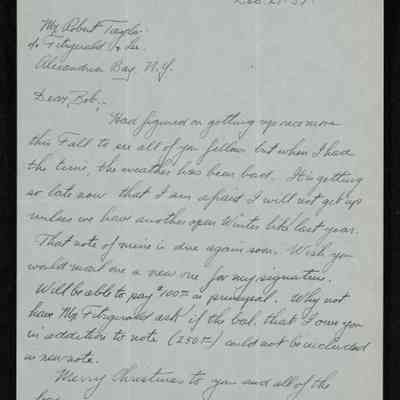 Dec. 21-37.
Mr Robert Taylor
c/o Fitzgerald & Lee
Alexandria Bay N.Y.
Dear Bob;-
Had figured on getting up once more
this Fall to see all of you fellows but when I have
the time, the weather has been bad. It is getting
so late now that I am afraid I will not get up
unless we have another open Winter like last year.
That note of mine is due again soon. Wish you
would mail me a new one for my signature.
Will be able to pay $100.= on principal. Why not
have Mr Fitzgerald ask if the bal. that I owe you
in addition to note (250.=) could not be included
in new note.
Merry Christmas to you and all of the